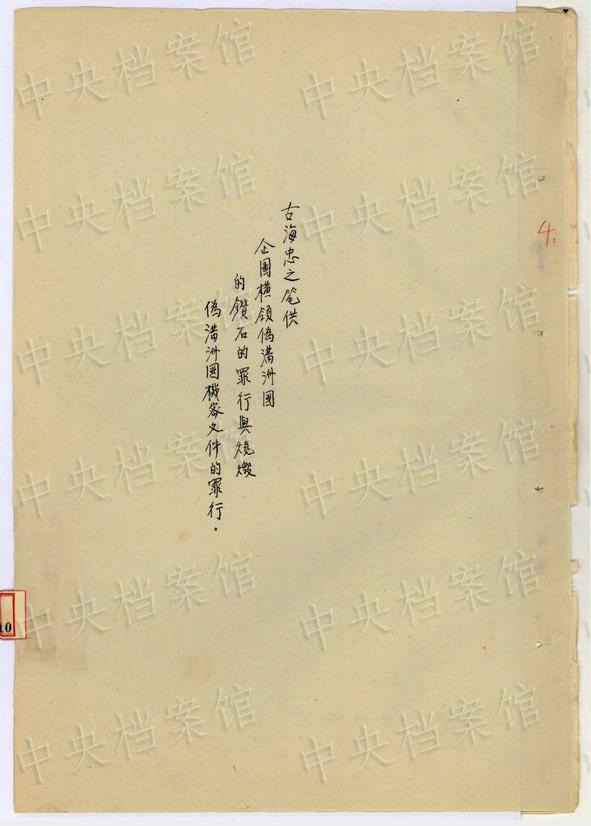 古海忠之笔供
企圖橫領偽滿洲國
的鑽石的罪行與燒燬
偽滿洲國機密文件的罪行.
4.
10
中央档案馆
中央档案馆
中央档案馆
中央档案馆
中央档案馆
中央档案馆
中央档案馆
中央档案馆
中央档案馆
中央档案馆
中央档案馆
中央档案馆